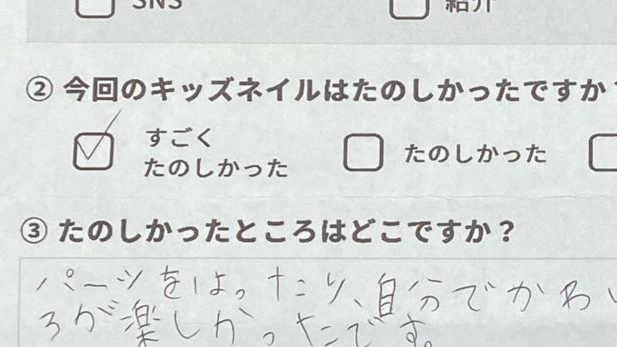 SNS 紹介
② 今回のキッズネイルはたのしかったですか
すごく
たのしかった たのしかった
③ たのしかったところはどこですか？
パーツをはったり、自分でかわ
ろが楽しかったです。